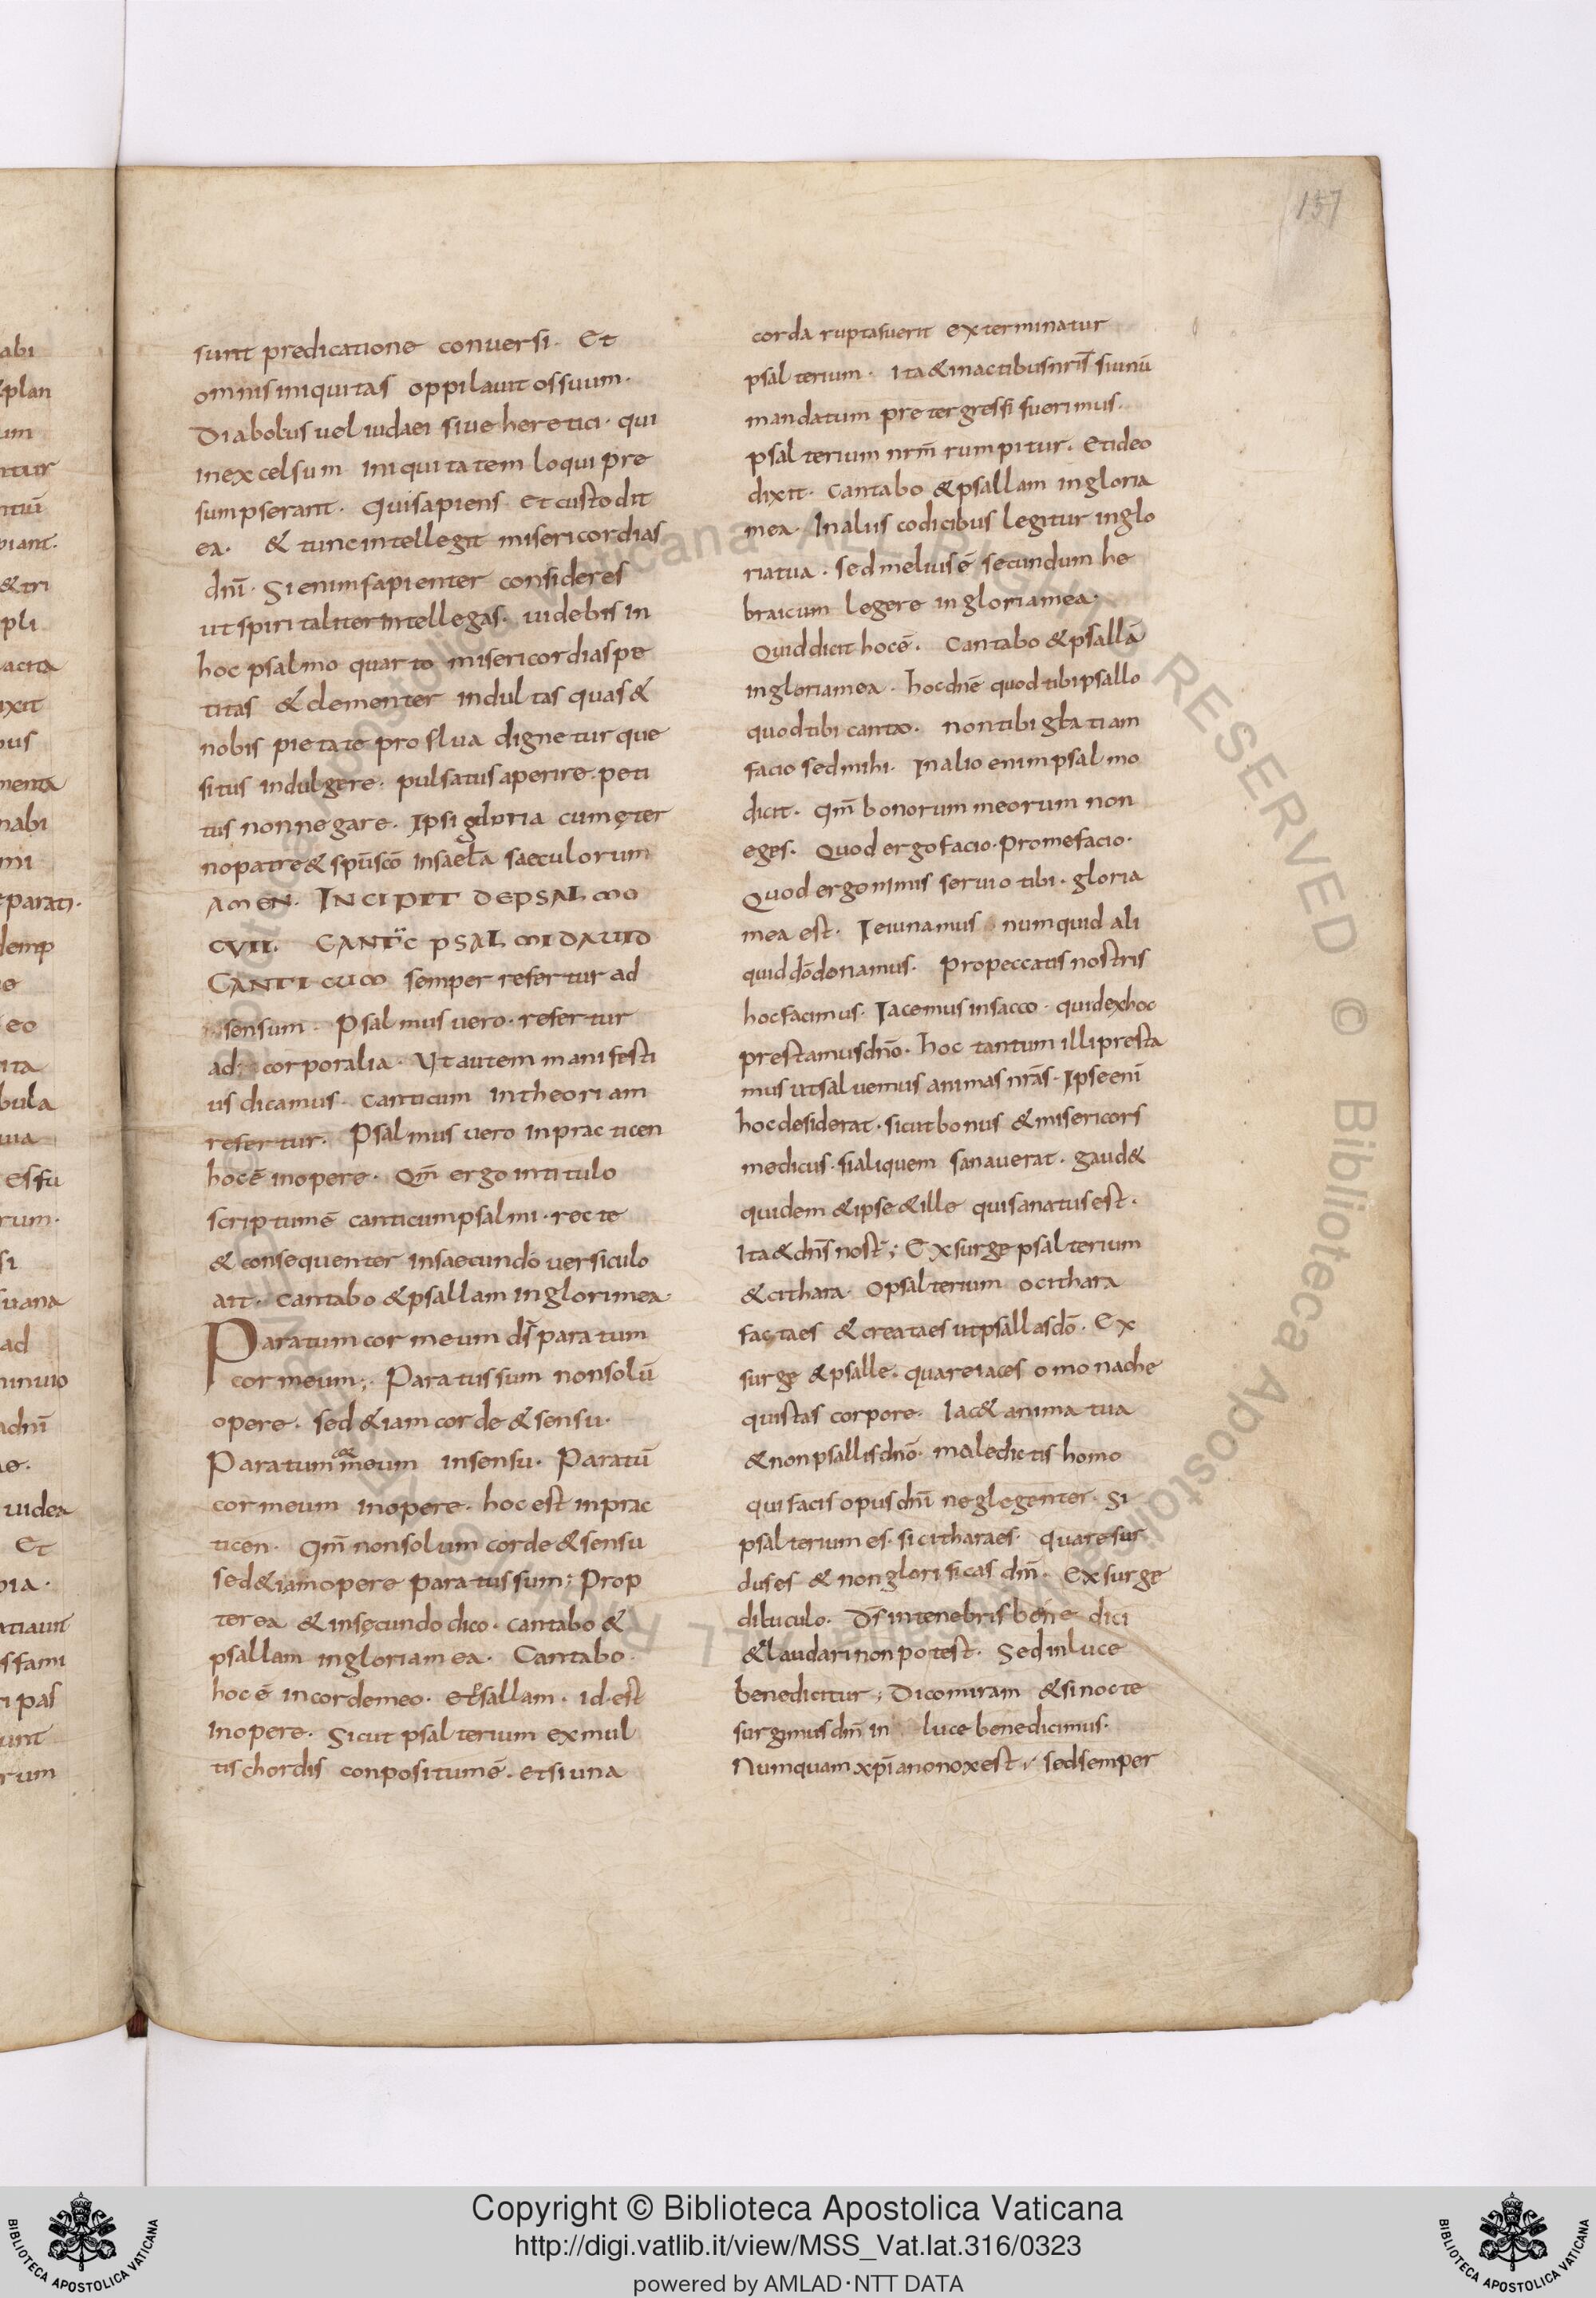 157
sunt predicatione conuersi · Et
omnis iniquitas oppilauit os suum ·
Diabolus uel iudaei siue heretici · qui
in excelsum iniquitatem loqui pre
sumpserant · Qui sapiens et custodit
ea · & tunc intellegit misericordias
dnī · Si enim sapienter consideres
ut spiritaliter intellegas · uidebis in
hoc psalmo quarto misericordias pe
titas & clementer indultas quas &
nobis pietate pro sua dignetur que
situs indulgere · pulsatus aperire · peti
tus non negare · Ipsi gloria cum ęter
no patre & spū scō in saecła saeculorum
AMEN · INCIPIT DE PSALMO
CVII · CANTĊ PSALMI DAVID
CANTICUM semper refertur ad
sensum · Psalmus uero · refertur
ad corporalia · Ut autem manifesti
us dicamus · canticum in theoriam
refertur · Psalmus uero in practicen
hoc ē in opere · Qm̄ ergo in titulo
scriptum ē canticum psalmi · recte
& consequenter in saecundo uersiculo
ait · Cantabo & psallam in glori mea ·
Paratum cor meum d̄s paratum
cor meum ; · Paratus sum non solū
opere · sed & iam corde & sensu ·
Paratum cor meum in sensu · Paratū
cor meum in opere · hoc est in prac
ticen · Qm̄ non solum corde & sensu
sed & iam opere paratus sum ; Prop
terea & in sęcundo dico · cantabo &
psallam in gloria mea · Cantabo ·
hoc ē in corde meo · et psallam · id est
in opere · Sicut psalterium ex mul
tis chordis conpositum ē · et si una
corda rupta fuerit exterminatur
psalterium · Ita & in actibus nrīs si unū
mandatum pretergressi fuerimus ·
psalterium nrm̄ rumpitur · Et ideo
dixit · Cantabo & psallam in gloria
mea · In aliis codicibus legitur in glo
ria tua · sed melius ē secundum he
braicum legere in gloria mea ·
Quid dicit hoc ē · Cantabo & psallā
in gloria mea · hoc dnē quod tibi psallo
quod tibi canto · non tibi gratiam
facio sed mihi · In alio enim psalmo
dicit · Qm̄ bonorum meorum non
eges · Quod ergo facio · Pro me facio ·
Quod ergo nimis seruio tibi · gloria
mea est · Ieiunamus numquid ali
quid dō donamus · Pro peccatis nostris
hoc facimus · Iacemus in sacco · quid ex hoc
prestamus dnō · hoc tantum illi presta
mus ut saluemus animas nrās · Ipse enī
hoc desiderat · sicut bonus & misericors
medicus · si aliquem sanauerat · gaud&
quidem & ipse & ille qui sanatus est ·
Ita & dn̄s nost̄ ; Exsurge psalterium
& cithara · O psalterium o cithara
facta es & creata es ut psallas dō · Ex
surge & psalle · quare iaces o monache
qui stas corpore · Iac& anima tua
& non psallis dnō · maledictus homo
qui facis opus dnī neglegenter · Si
psalterium es · si cithara es · quare sur
dus es & non glorificas dm̄ · Exsurge
diluculo · D̄s in tenebris bene dici
& laudari non potest · Sed in luce
benedicitur ; Dico miram & si nocte
surgimus dm̄ in luce benedicimus ·
Numquam xpīano nox est · sed semper
Copyright © Biblioteca Apostolica Vaticana
http://digi.vatlib.it/view/MSS_Vat.lat.316/0323
powered by AMLAD·NTT DATA